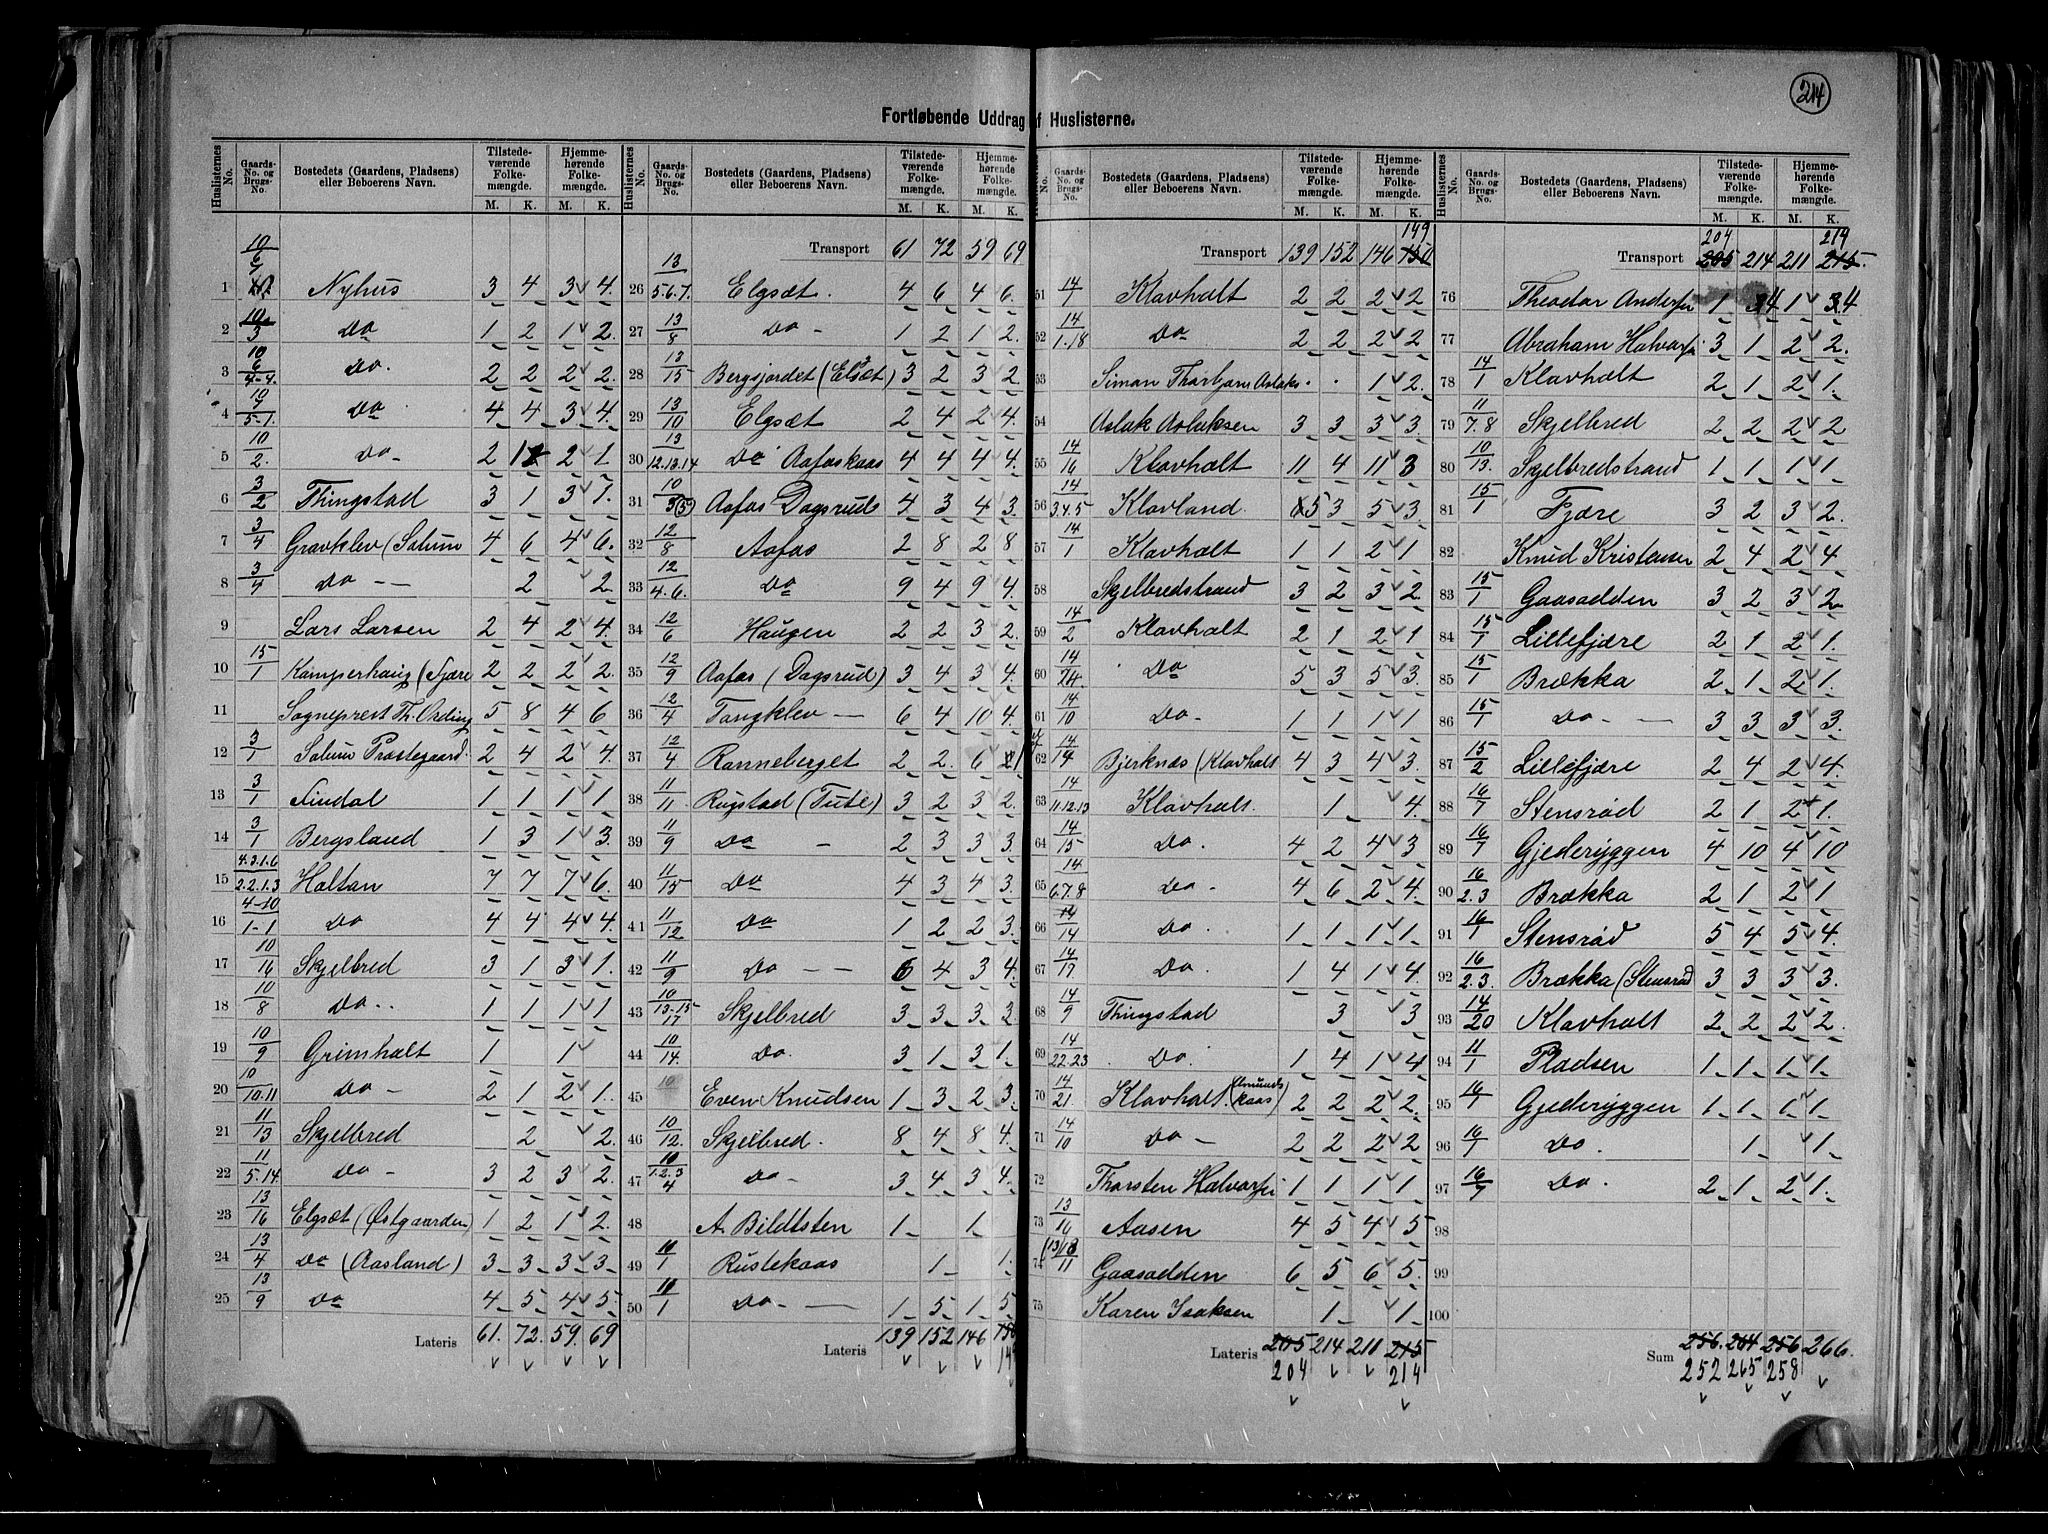 214
Fortløbende Uddrag af Huslisterne.
Huslisternes No. Gaards-No. og Brugs-No. Bostedets (Gaardens, Pladsens) eller Beboerens Navn. Tilstedeværende Folkemængde. M. K. Hjemmehørende Folkemængde. M. K.
1 Nyhus 3 4 3 4.
2 Do 1 2 1 2.
3 10/6 4-4. Do. 2 2 2 2.
4 Do 4 4 3 4
5 10/2. Do 2 2 1
6 3/2 Thingstad 3 1 3 1.
7 3/4 Gravklev (Solum 4 6 4 6.
8 3/4 Do 2 2.
9 Lars Larsen 2 4 2 4.
10 15/1 Kamperhaug (Fjære 2 2 2 2.
11 Sogneprest Th.Ording 5 8 4 6
12 3/1 Solum Prestegaard. 2 4 2 4.
13 3/1 Lindal 1 1 1 1
14 3/1 Bergsland 1 3 1 3.
15 4.3.1.6 / 2.2.1.3 Holtan 7 7 7 6.
16 4-10 / 1-1 Do 4 4 4 4.
17 10/16 Skjelbred 3 1 3 1.
18 10/8 Do 1 1 1 1
19 10/9 Grimholt 1 1
20 10/10.11 Do 2 1 2 1.
21 11/13 Skjelbred 2 2.
22 11/5.14. Do 3 2 3 2.
23 13/16 Elgsæt (Østgaarden) 1 2 1 2.
24 13/4 Do (Aasland) 3 3 3 3.
25 13/9 Do 4 5 4 5.
Lateris 61. 72. 59. 69
Huslisternes No. Gaards-No. og Brugs-No. Bostedets (Gaardens, Pladsens) eller Beboerens Navn. Tilstedeværende Folkemængde. M. K. Hjemmehørende Folkemængde. M. K.
Transport 61 72 59 69
26 13/5.6.7. Elgsæt. 4 6 4 6.
27 13/8 Do 1 2 1 2.
28 13/15 Bergsjordet (Elgsæt) 3 2 3 2
29 13/10 Elgsæt 2 4 2 4.
30 13/12.13.14 Do Aafoskaas 4 4 4 4.
31 10/3(5) Aafos Dagsrud 4 3 4 3.
32 12/8 Aafos 2 8 2 8
33 12/4.6. Do 9 4 9 4.
34 12/6 Haugen 2 2 3 2.
35 12/9 Aafos (Dagsrud) 3 4 3 4
36 12/4 Tangklev 6 4 10 4.
37 12/4 Ranneberget 2 2. 6 1
38 11/11 Rugstad (Tufte) 3 2 3 2.
39 11/9 Do 2 3 3 3.
40 11/15 Do 4 3 4 3.
41 11/12 Do 1 2 2 3.
42 11/9 Do 6 4 3 4.
43 10/13-15 17 Skjelbred 3 3 3 2.
44 10/14 Do. 3 1 3 1.
45 10 Even Knudsen 1 3 2 3.
46 10/12. Skjelbred. 8 4 8 4.
47 10/1.2.3 4 Do 3 4 3 4.
48 A. Bildtsten 1 1
49 10/1 Rustekaas 1 1.
50 10/1 Do 1 5 1 5
Lateris 139 152 146 150
149
Huslisternes No. Gaards-No. og Brugs-No. Bostedets (Gaardens, Pladsens) eller Beboerens Navn. Tilstedeværende Folkemængde. M. K. Hjemmehørende Folkemængde. M. K.
149
Transport 139 152 146 150
51 14/1 Klavholt 2 2 2 2
52 14/1.18 Do 2 2 2 2
53 Simon Thorbjørn Aslaks 1 2.
54 Aslak Aslaksen 3 3 3 3.
55 14/16 Klavholt 11 4 11 3
56 14/3.4.5 Klavland. 5 3 5 3.
57 14/1 Klavholt 1 1 2 1
58 Skjelbredstrand 3 2 3 2.
59 14/2 Klavholt 2 1 2 1
60 14/24. Do 5 3 5 3.
61 14/10 Do 1 1 1 1
62 14/19 Bjerknæs (Klavholt 4 3 4 3.
63 14/11.12.13 Klavholt. 1 4.
64 14/15 Do. 4 2 4 3
65 14/6.7.8 Do 4 6 2 4.
66 14/14 Do. 1 1 1 1.
67 14/17 Do. 1 4 1 4.
68 14/9 Thingstad 3 3
69 14/22.23 Do 1 4 1 4
70 14/21 Klavholt. (Amunds kaas) 2 2 2 2.
71 14/10 Do 2 2 2 2
72 Thorsten Halvorsen 1 1 1 1.
73 13/16 Aasen 4 5 4 5
74 Gaasodden 6 5 6 5.
75 Karen Isaksen 1 1.
Lateris 205 214 211 215
204 214
Huslisternes No. Gaards-No. og Brugs-No. Bostedets (Gaardens, Pladsens) eller Beboerens Navn. Tilstedeværende Folkemængde. M. K. Hjemmehørende Folkemængde. M. K.
204 214
Transport 205 214 211 215.
76 Theodor Andersen 1 4 1 4
77 Abraham Halvorsen 3 1 2 2.
78 14/1 Klavholt 2 1 2 1.
79 11/7.8 Skjelbred 2 2 2 2
80 10/13. Skjelbredstrand 1 1 1 1
81 15/1 Fjære 3 2 3 2.
82 Knud Kristensen 2 4 2 4
83 15/1 Gaasodden 3 2 3 2
84 15/1 Lillefjære 2 1 2 1.
85 15/1 Brækka 2 1 2 1.
86 15/1 Do 3 3 3 3.
87 15/2 Lillefjære 2 4 2 4.
88 16/7 Stensrød 2 1 2 1.
89 16/7 Gjederyggen 4 10 4 10
90 16/2.3 Brækka 2 1 2 1
91 16/1 Stensrød 5 4 5 4.
92 16/2.3 Brækka (Stensrød 3 3 3 3.
93 14/20 Klavholt 2 2 2 2.
94 11/1 Pladsen 1 1 1 1.
95 16/7 Gjederyggen 1 1 1 1.
96 16/1 Do. 1 1.
97 16/7 Do. 2 1 2 1.
98
99
100
Sum 256. 264 256 266.
252 265 258